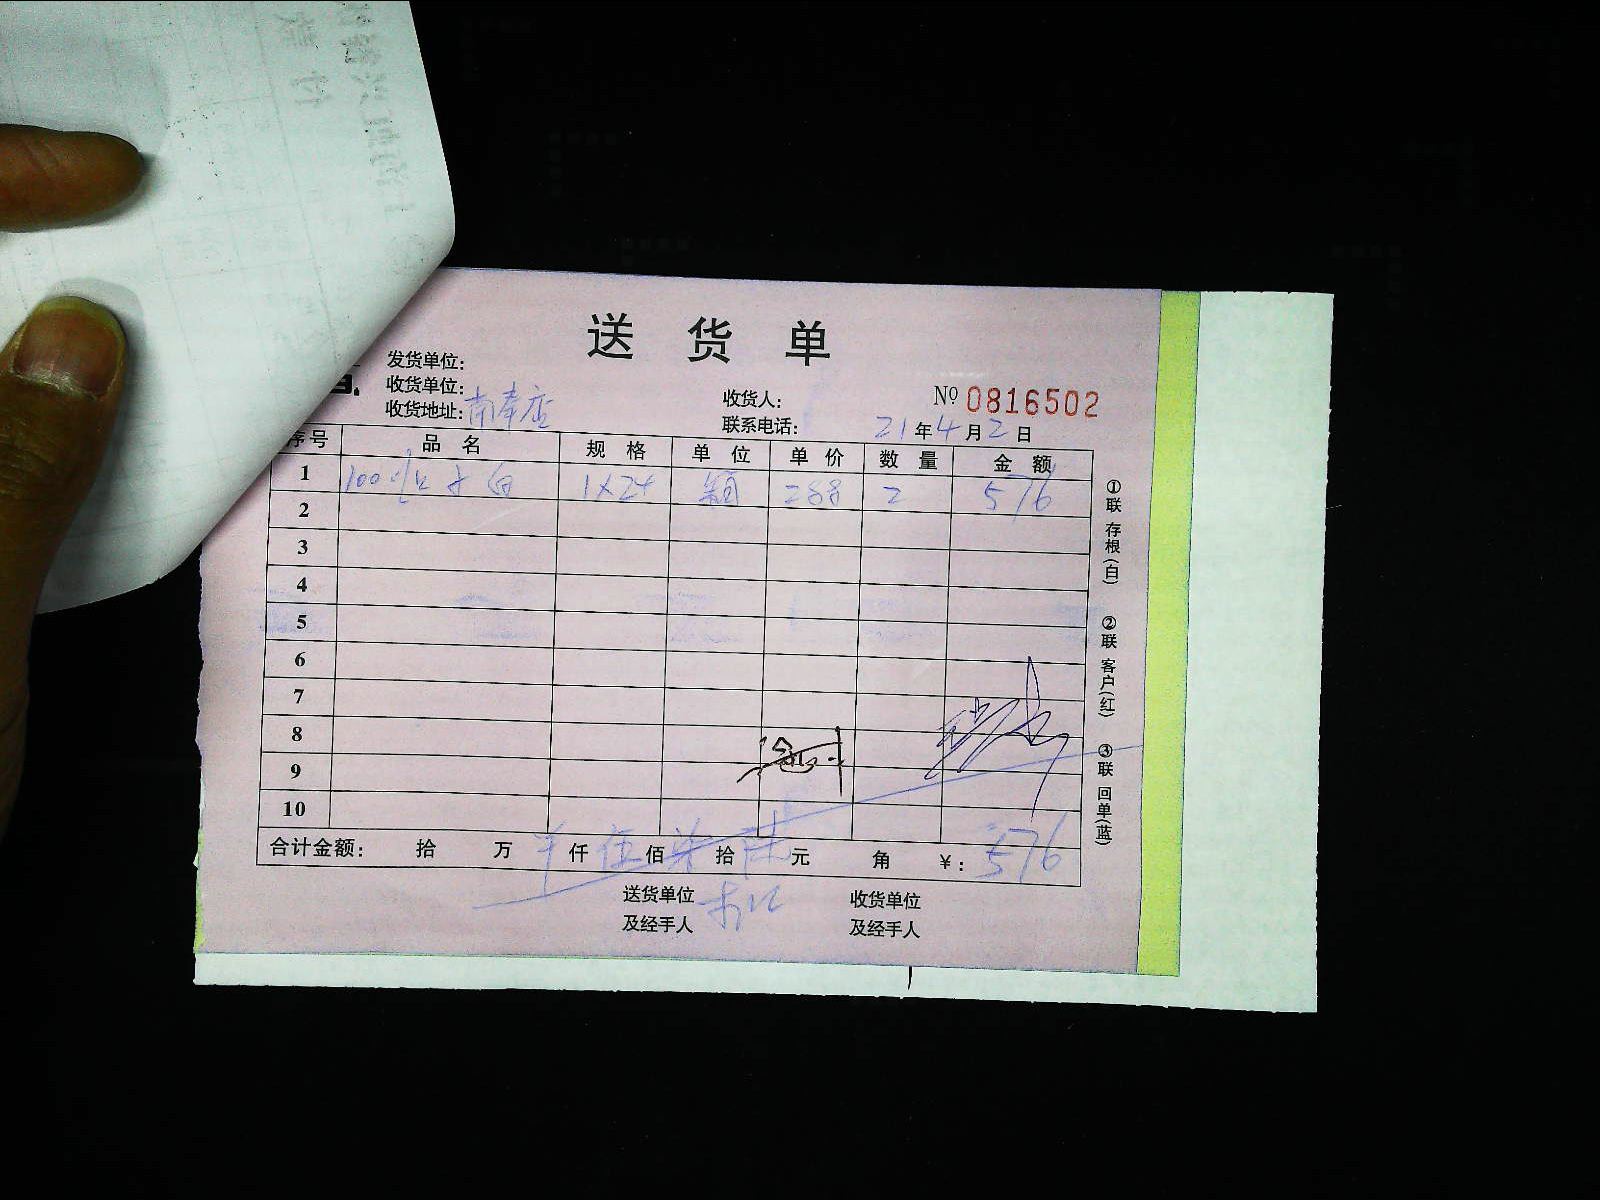 送货单
发货单位：
收货单位：
收货地址：南奉店
收货人：
联系电话：
No 0816502
21年4月2日
序号 品名 规格 单位 单价 数量 金额
1 100 1×24 箱 288 2 576
2
3
4
5
6
7
8
9
10
合计金额： 拾 万 仟 伍佰 柒拾 陆元 角 ¥：576
送货单位
及经手人
收货单位
及经手人
①联 存根(白) ②联 客户(红) ③联 回单(蓝)